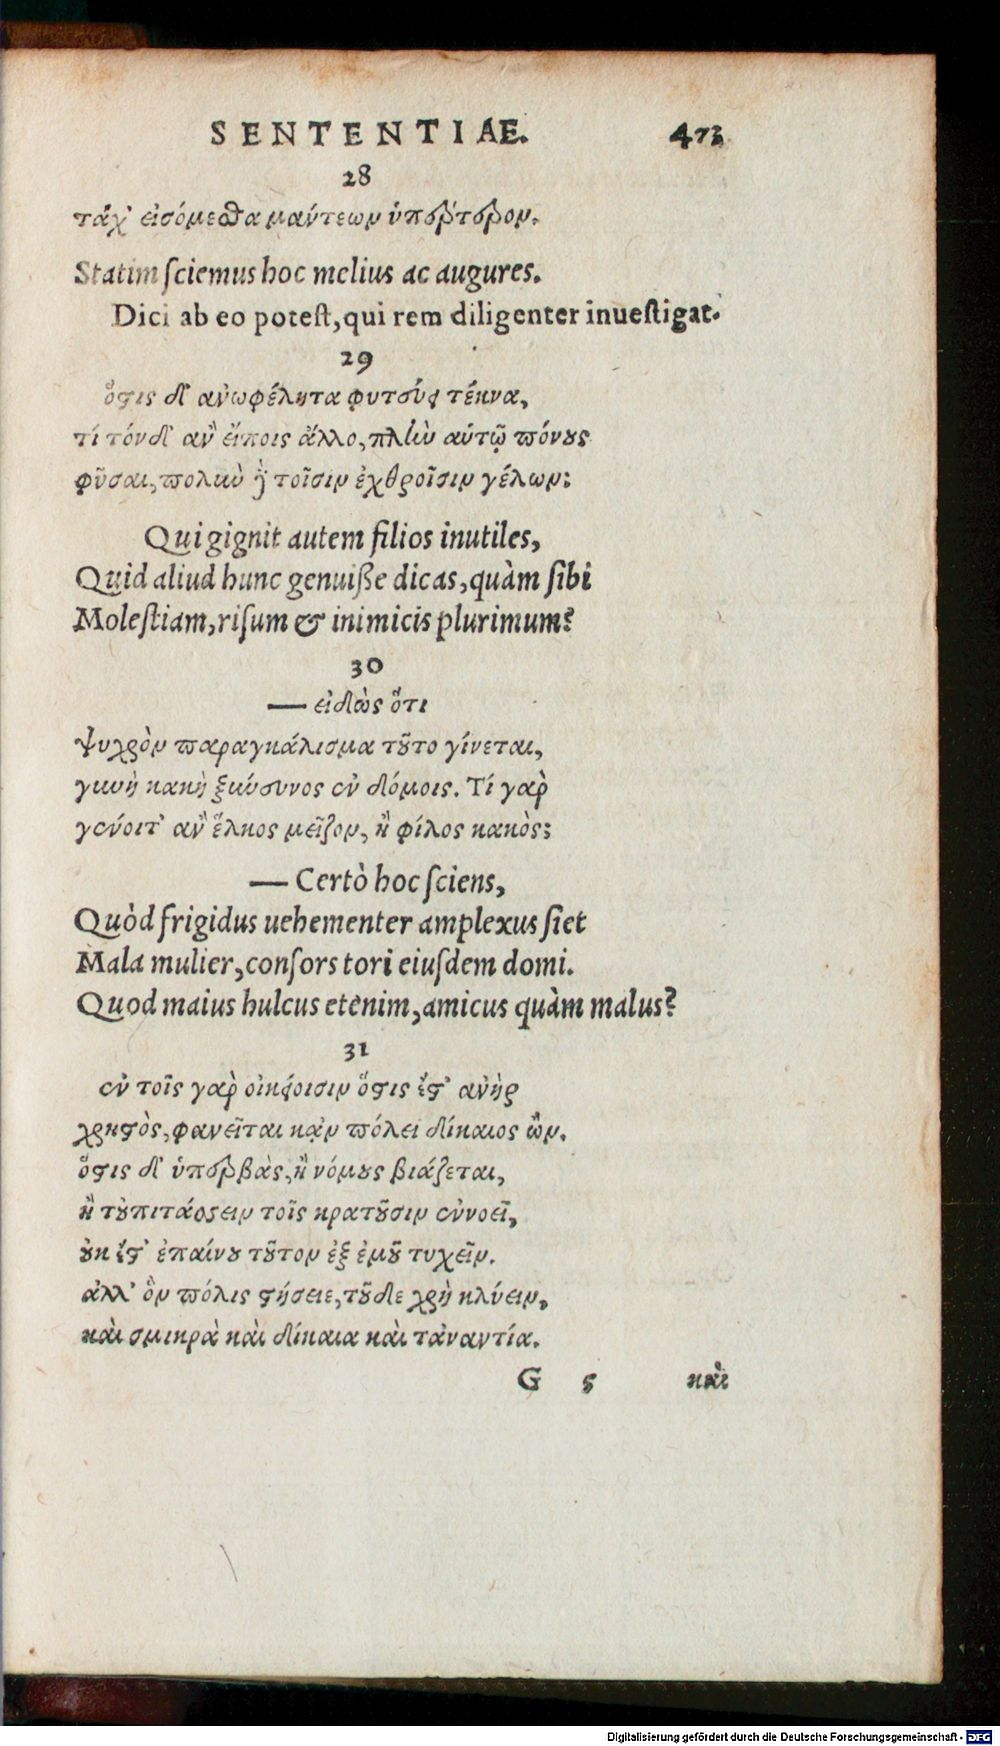 SENTENTIAE. 473
28
τάχ' εἰσόμεσθα μαύτεων ὑπέρτερον.
Statim sciemus hoc melius ac augures.
Dici ab eo potest, qui rem diligenter inuestigat.
29
ὅστις δ' ἀνωφέλητα φυτεύει τέκνα,
τί τόνδ' ἂν εἴποις ἄλλο, πλὴν αὑτῷ πόνους
φῦσαι, πολὺν δὲ τοῖσιν ἐχθροῖσιν γέλων;
Qui gignit autem filios inutiles,
Quid aliud hunc genuiße dicas, quàm sibi
Molestiam, risum & inimicis plurimum?
30
— εἰδὼς ὅτι
Ψυχρὸν παραγκάλισμα τοῦτο γίνεται,
γυνὴ κακὴ ξύνευνος ἐν δόμοις. Τί γὰρ
γένοιτ' ἂν ἕλκος μεῖζον, ἢ φίλος κακὸς;
— Certò hoc sciens,
Quòd frigidus uehementer amplexus siet
Mala mulier, consors tori eiusdem domi.
Quod maius hulcus etenim, amicus quàm malus?
31
ἐν τοῖς γὰρ οἰκείοισιν ὅστις ἔστ' ἀνὴρ
χρηστὸς, φανεῖται κἀν πόλει δίκαιος ὤν.
ὅστις δ' ὑπερβὰς, ἢ νόμους βιάζεται,
ἢ τοὐπιτάσσειν τοῖς κρατοῦσιν ἐννοεῖ,
οὐκ ἔστ' ἐπαίνου τοῦτον ἐξ ἐμοῦ τυχεῖν.
ἀλλ' ὃν πόλις στήσειε, τοῦδε χρὴ κλύειν,
καὶ σμικρὰ καὶ δίκαια καὶ τἀναντία.
G 5 καὶ
Digitalisierung gefördert durch die Deutsche Forschungsgemeinschaft - DFG